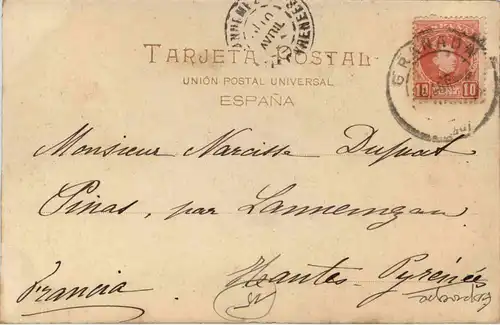 TARJETA POSTAL
UNIÓN POSTAL UNIVERSAL
ESPAÑA
GRANADA
10 10
10 AVRIL
PYRENEES
Monsieur Narcisse Dupuat
Pinas, par Lannemezan
Francia Hautes-Pyrénées